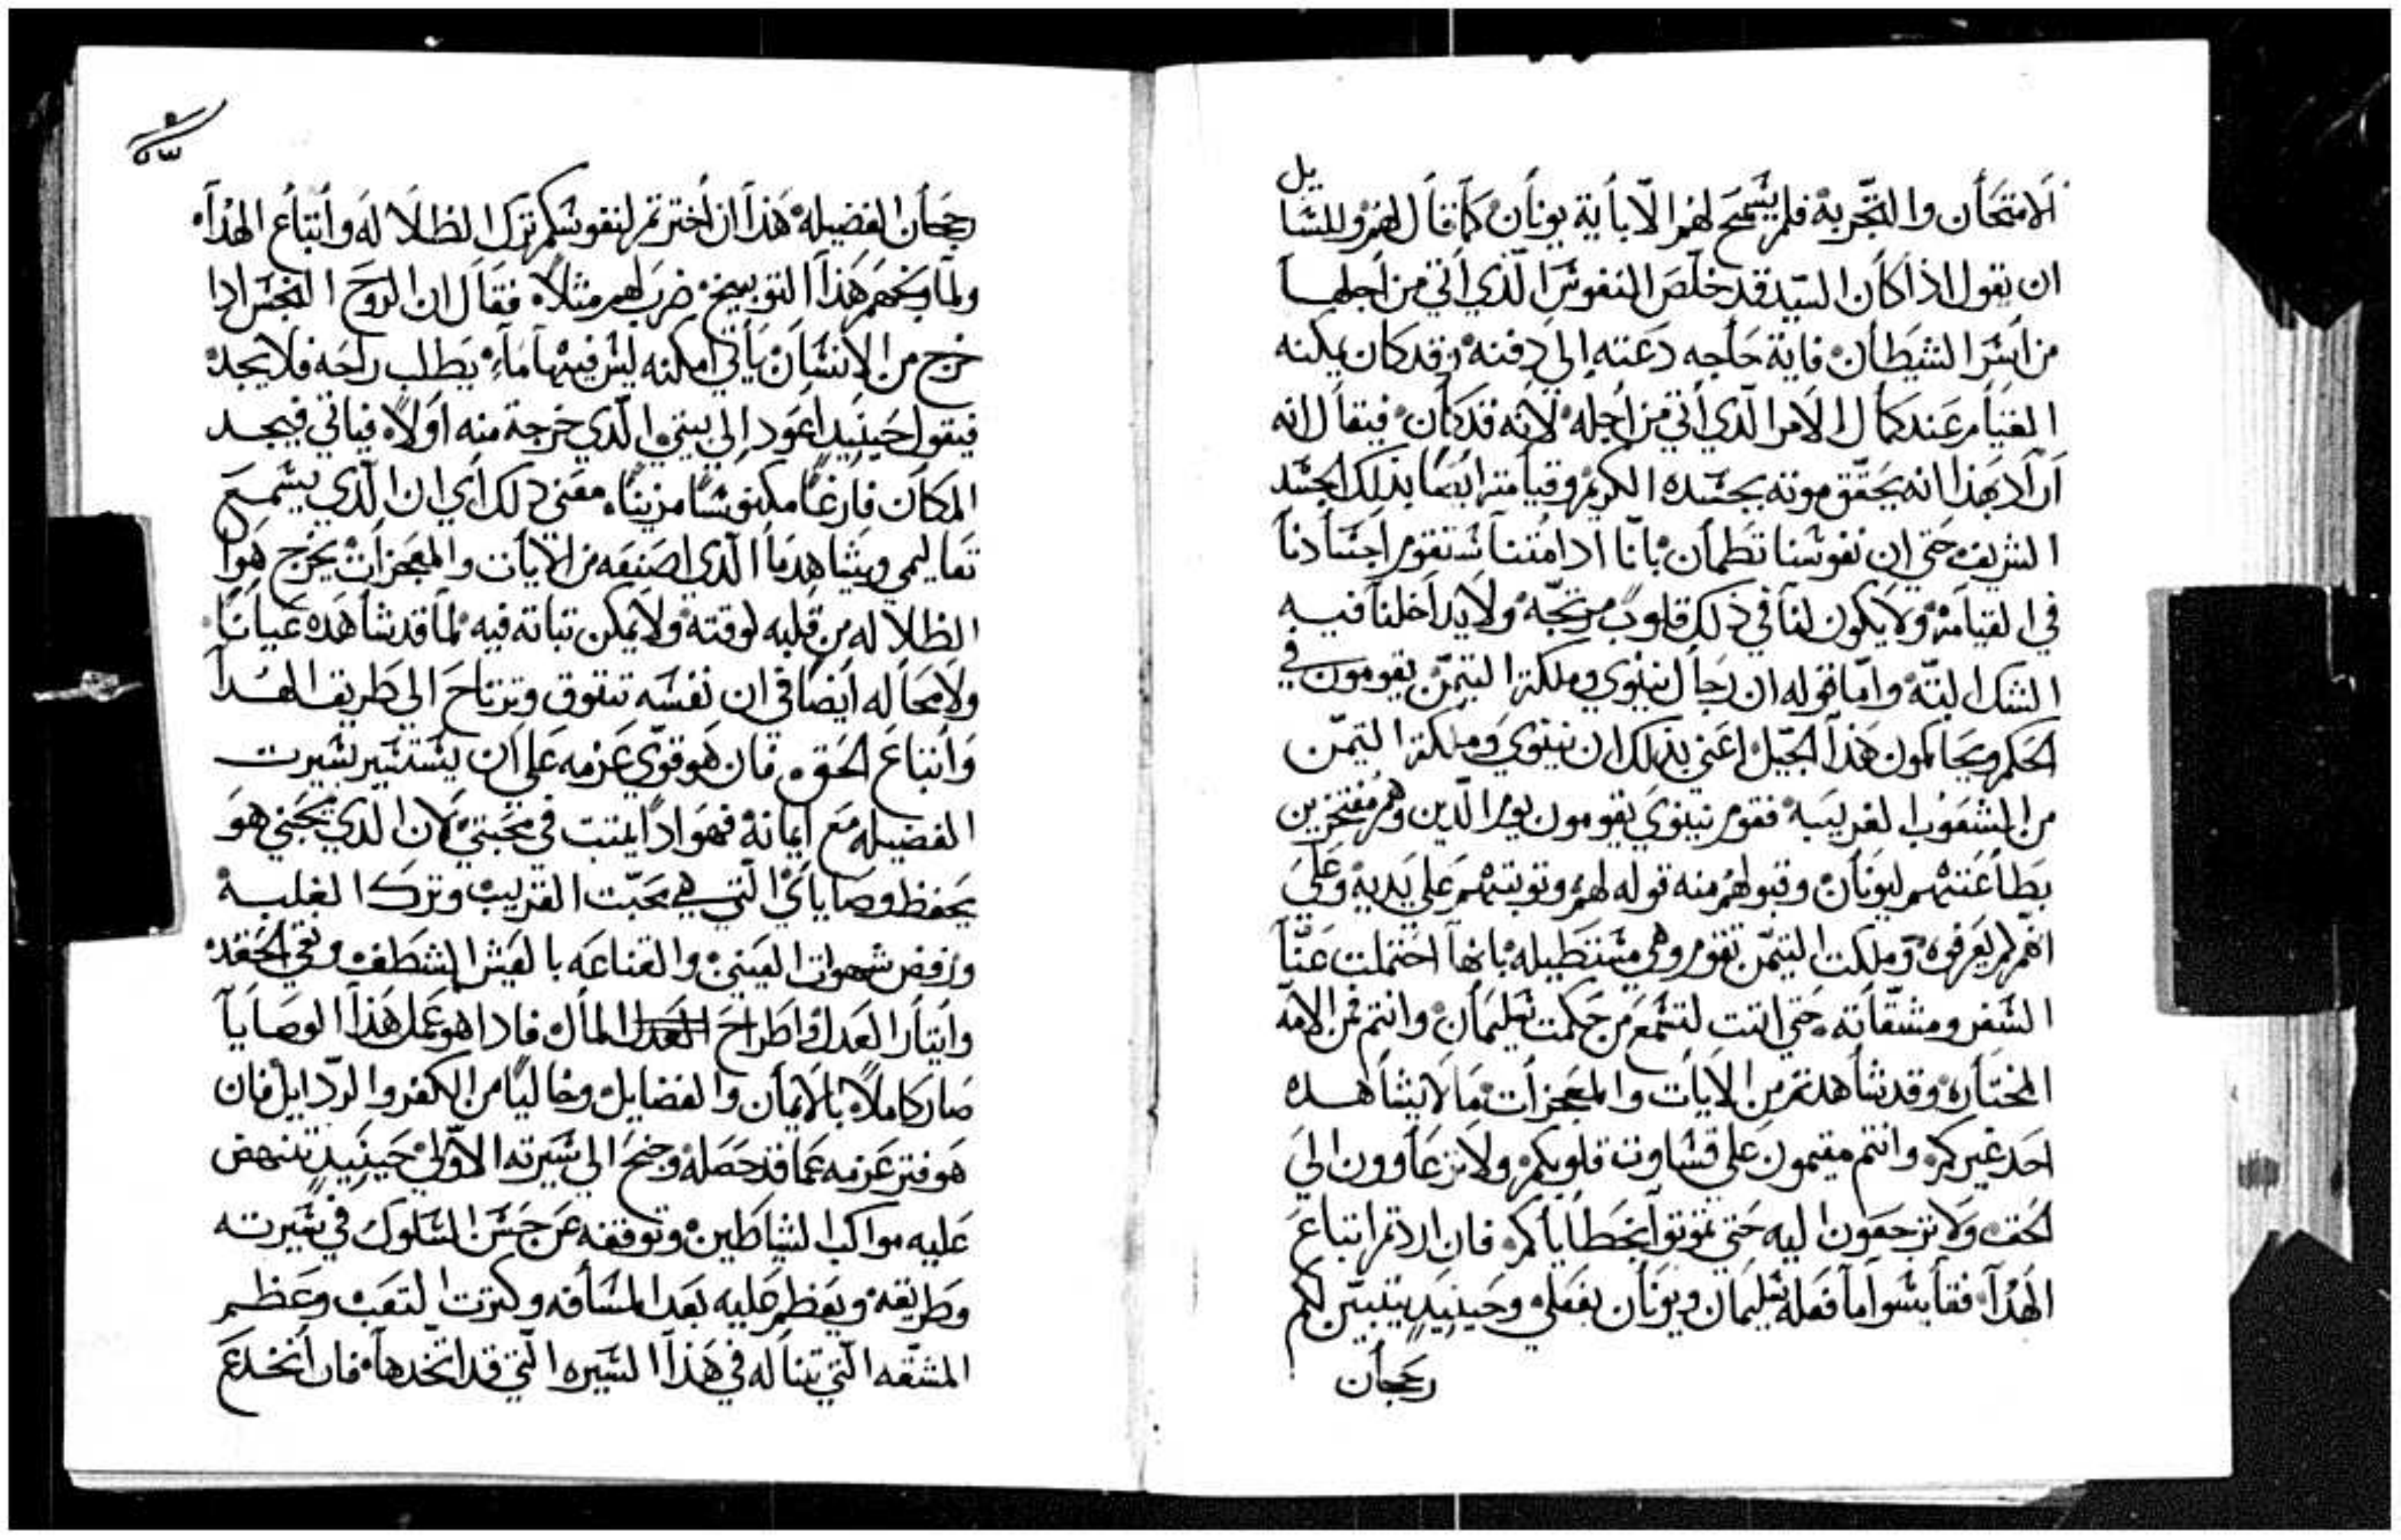 الامتحان والتجربة فلم يشمح لهم الا باية يونان كما قال لهم وللشايل
ان يقول اذا كان السيد قد خلص النفوش الذي اتي من اجلها
من اشر الشيطان فاية حاجه دعته الي دفنه وقد كان يمكنه
القيام عند كمال الامر الذي اتي من اجله لانه قد كان فيقال انه
اراد بهذا انه يحقق موته بجشده الكريم وقيامته ايضا بذلك الجشد
الشريف حتي ان نفوشنا تطمان بانا ادا متنا شتقوم اجشادنا
في القيامة ولا يكون لنا في ذلك قلوب مرتجه ولا يداخلنا فيه
الشك البته واما قوله ان رجال نينوي وملكة التيمن يقومون في
الحكم ويحاكمون هذا الجيل اعني بذلك ان نينوي وملكة التيمن
من الشعوب الغريبه فقوم نينوي يقومون يوم الدين وهم مفتخرين
بطاعتهم ليونان وقبولهم منه قوله لهم وتوبتهم علي يديه وعلي
انهم لم يعرفوه وملكت التيمن تقوم وهي مشتطيله بانها احتملت عنا
الشفر ومشقاته حتي اتت لتشمع من حكمت شليمان وانتم فمن الامه
المختاره وقد شاهدتم من الايات والمعجزات ما لا يشاهده
احد غيركم وانتم مقيمون علي قشاوت قلوبكم ولا ترعاوون الي
الحق ولا ترجعون اليه حتي تموتوا بخطاياكم فان اردتم اتباع
الهدا فقايشوا ما فعله شليمان ويونان بفعلي وحينيد يتبين لكم
رجحان
رجحان الفضيله هذا ان اخترتم لنفوشكم ترك الظلاله واتباع الهدا
ولما وبخهم هذا التوبيخ ضرب لهم مثلا فقال ان الروح النجش ادا
خرج من الانشان ياتي امكنه ليش فيها ماء يطلب راحه فلا يجد
فيقول حينيد اعود الي بيتي الدي خرجة منه اولا فياتي فيجد
المكان فارغا مكنوشا مزينا معني ذلك اي ان الذي يشمع
تعاليمي ويشاهد ما الذي اصنعه من الايات والمعجزات يخرج هوا
الظلاله من قلبه لوقته ولا يمكن تباته فيه لما قد شاهده عيانا
ولا محاله ايضا في ان نفشه تتوق وترتاح الي طريق الهدا
واتباع الحق فان هو قوي عزمه علي ان يشتشير بشيرت
الفضيله مع ايمانه فهو ادا يتبت في محبتي لان الدي يحبني هو
يحفظ وصاياي التي هي محبت القريب وترك الغلبه
ورفض شهوات العيني والقناعه بالعيش الشطف ونقي الحقد
وايتار العدل واطراح المال فادا هو عمل هذا الوصايا
صار كاملا بالايمان والفضايل وخاليا من الكفر والردايل فان
هو فتر عزمه عما قد حصله وجنح الي شيرته الاولي حينيد تنهض
عليه مواكب الشياطين وتوقفه عن حشن الشلوك في شيرته
وطريقه ويعظم عليه بعد المشافه وكترت التعب وعظم
المشقه التي تناله في هذا الشيره التي قد اتخدها فان انخدع